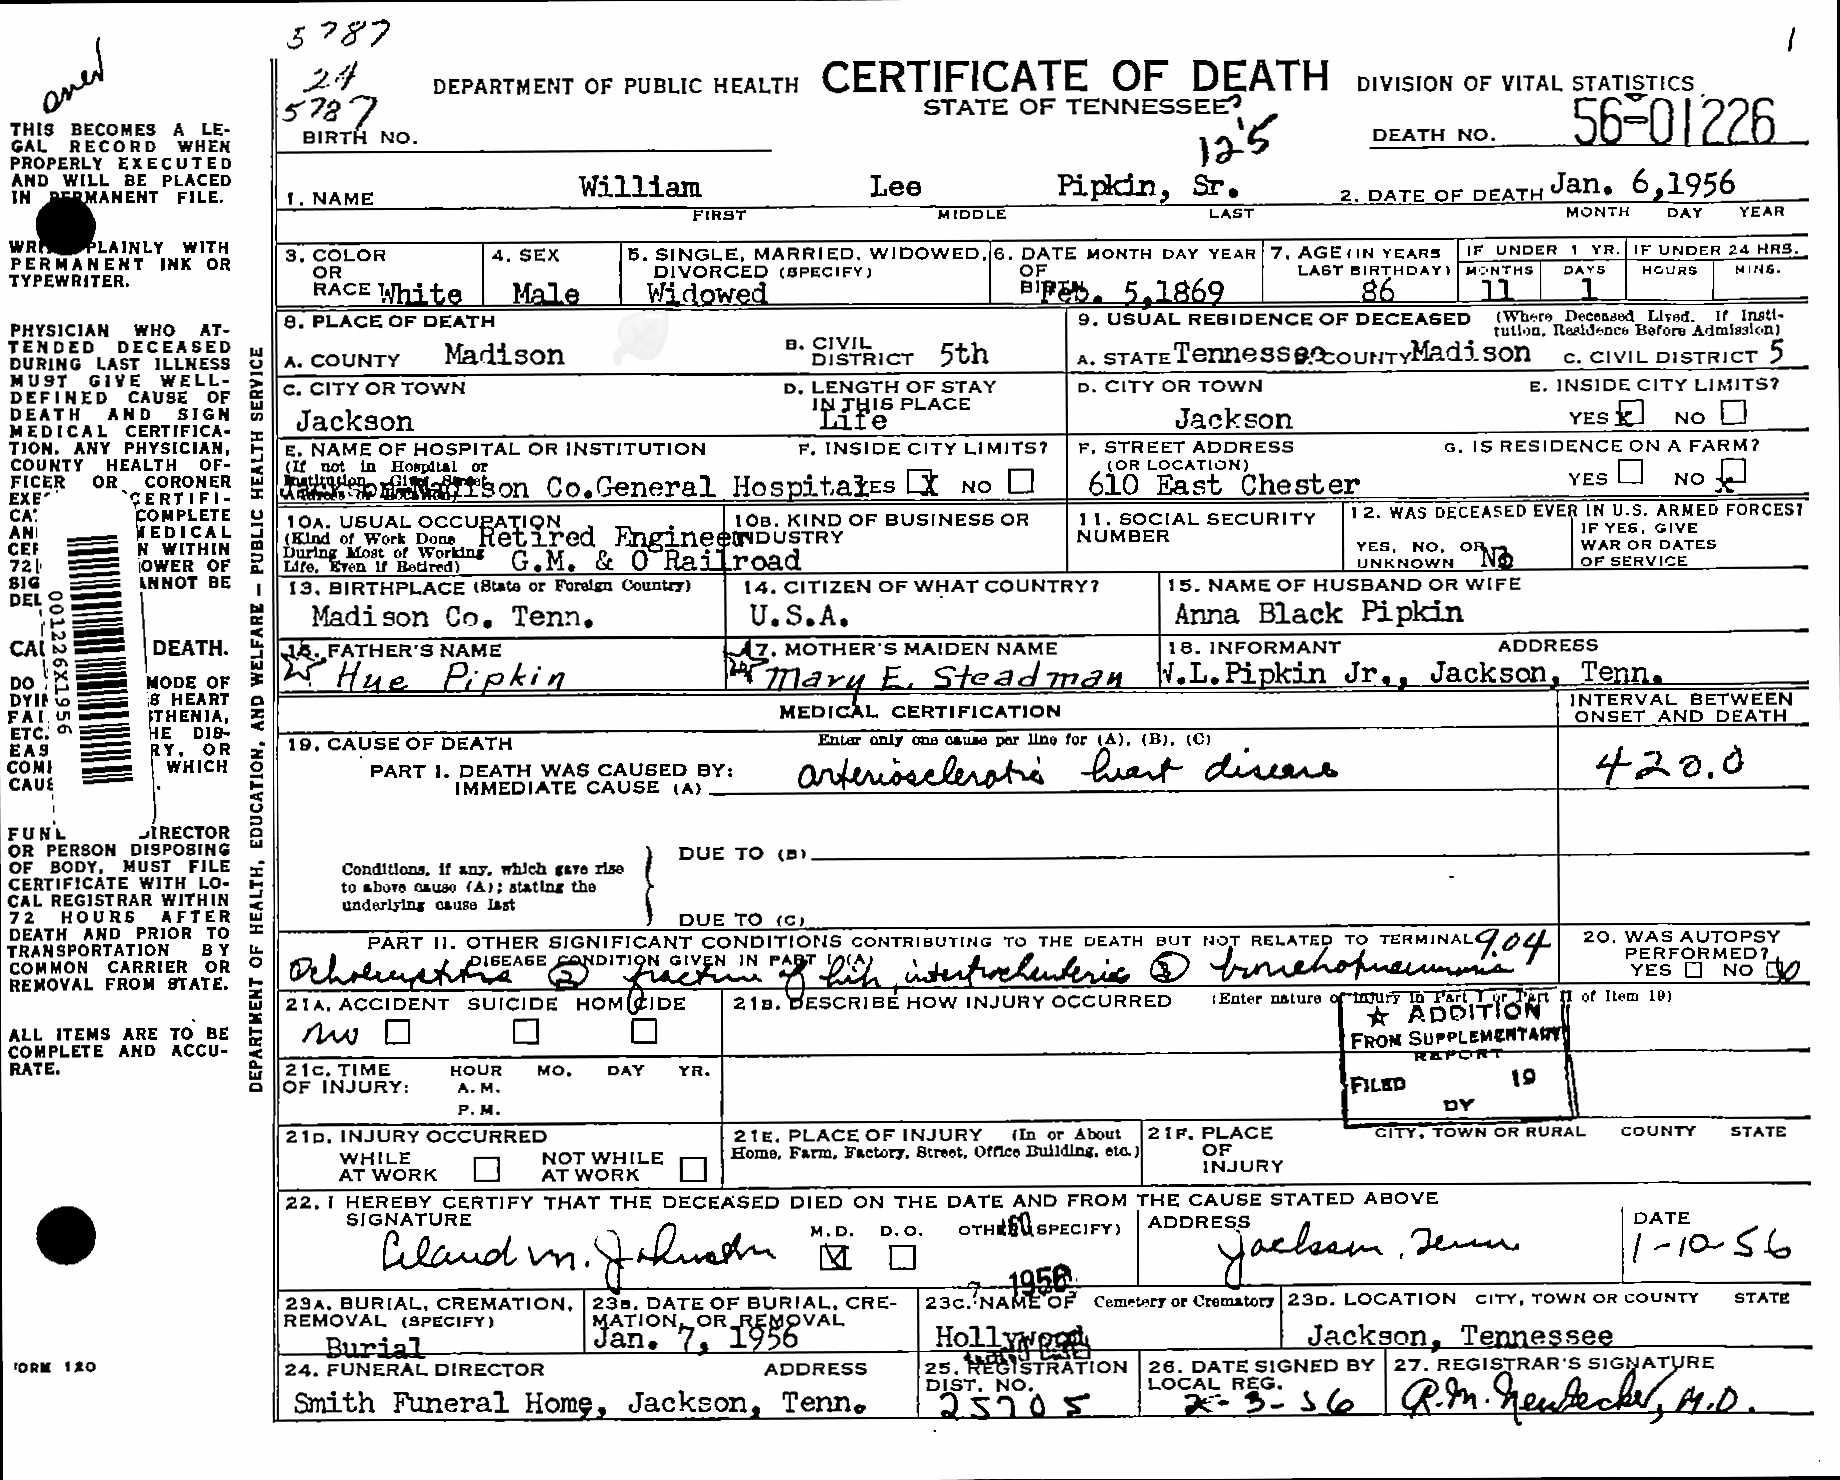 5787
1
amed
24
5787
DEPARTMENT OF PUBLIC HEALTH CERTIFICATE OF DEATH DIVISION OF VITAL STATISTICS
STATE OF TENNESSEE
BIRTH NO.
125
DEATH NO. 56-01226
THIS BECOMES A LE-
GAL RECORD WHEN
PROPERLY EXECUTED
AND WILL BE PLACED
IN PERMANENT FILE.
WRITE PLAINLY WITH
PERMANENT INK OR
TYPEWRITER.
PHYSICIAN WHO AT-
TENDED DECEASED
DURING LAST ILLNESS
MUST GIVE WELL-
DEFINED CAUSE OF
DEATH AND SIGN
MEDICAL CERTIFICA-
TION. ANY PHYSICIAN,
COUNTY HEALTH OF-
FICER OR CORONER
CERTIFI-
COMPLETE
MEDICAL
N WITHIN
72 OWER OF
SIG ANNOT BE
DEL
CAU DEATH.
DO MODE OF
DYIN S HEART
FAI STHENIA,
ETC. HE DIS-
EAS RY, OR
COM WHICH
CAUS
001226X1956
FUNE DIRECTOR
OR PERSON DISPOSING
OF BODY, MUST FILE
CERTIFICATE WITH LO-
CAL REGISTRAR WITHIN
72 HOURS AFTER
DEATH AND PRIOR TO
TRANSPORTATION BY
COMMON CARRIER OR
REMOVAL FROM STATE.
ALL ITEMS ARE TO BE
COMPLETE AND ACCU-
RATE.
FORM 120
DEPARTMENT OF HEALTH, EDUCATION, AND WELFARE — PUBLIC HEALTH SERVICE
1. NAME William Lee Pipkin, Sr. 2. DATE OF DEATH Jan. 6,1956
FIRST MIDDLE LAST MONTH DAY YEAR
3. COLOR OR RACE White
4. SEX Male
5. SINGLE, MARRIED, WIDOWED, DIVORCED (SPECIFY) Widowed
6. DATE OF BIRTH MONTH DAY YEAR Feb. 5,1869
7. AGE (IN YEARS LAST BIRTHDAY) 86
IF UNDER 1 YR. MONTHS 11 DAYS 1
IF UNDER 24 HRS. HOURS MINS.
8. PLACE OF DEATH
A. COUNTY Madison B. CIVIL DISTRICT 5th
9. USUAL RESIDENCE OF DECEASED (Where Deceased Lived. If Insti-
tution, Residence Before Admission)
A. STATE Tennessee COUNTY Madison C. CIVIL DISTRICT 5
C. CITY OR TOWN Jackson
D. LENGTH OF STAY IN THIS PLACE Life
D. CITY OR TOWN Jackson
E. INSIDE CITY LIMITS? YES X NO
E. NAME OF HOSPITAL OR INSTITUTION
(If not in Hospital or
Institution, Give Street
Address or Location)
Jackson-Madison Co.General Hospital
F. INSIDE CITY LIMITS? YES X NO
F. STREET ADDRESS (OR LOCATION) 610 East Chester
G. IS RESIDENCE ON A FARM? YES NO X
10A. USUAL OCCUPATION
(Kind of Work Done
During Most of Working
Life, Even if Retired)
Retired Engineer
10B. KIND OF BUSINESS OR INDUSTRY
G.M. & O Railroad
11. SOCIAL SECURITY NUMBER
12. WAS DECEASED EVER IN U.S. ARMED FORCES?
YES, NO, OR UNKNOWN No
IF YES, GIVE WAR OR DATES OF SERVICE
13. BIRTHPLACE (State or Foreign Country) Madison Co. Tenn.
14. CITIZEN OF WHAT COUNTRY? U.S.A.
15. NAME OF HUSBAND OR WIFE Anna Black Pipkin
16. FATHER'S NAME Hue Pipkin
17. MOTHER'S MAIDEN NAME Mary E. Steadman
18. INFORMANT ADDRESS
W.L.Pipkin Jr., Jackson, Tenn.
MEDICAL CERTIFICATION
INTERVAL BETWEEN
ONSET AND DEATH
19. CAUSE OF DEATH Enter only one cause per line for (A), (B), (C)
PART I. DEATH WAS CAUSED BY:
IMMEDIATE CAUSE (A) arteriosclerotic heart disease 420.0
Conditions, if any, which gave rise
to above cause (A); stating the
underlying cause last
DUE TO (B)
DUE TO (C)
PART II. OTHER SIGNIFICANT CONDITIONS CONTRIBUTING TO THE DEATH BUT NOT RELATED TO TERMINAL 904
DISEASE CONDITION GIVEN IN PART I (A)
① cholecystitis ② fracture of hip, intertrochanteric ③ bronchopneumonia
20. WAS AUTOPSY PERFORMED? YES NO X
21A. ACCIDENT SUICIDE HOMICIDE
no
21B. DESCRIBE HOW INJURY OCCURRED (Enter nature of injury in Part I or Part II of Item 19)
☆ ADDITION
FROM SUPPLEMENTARY
REPORT
FILED 19
BY
21C. TIME OF INJURY: HOUR MO. DAY YR.
A.M.
P.M.
21D. INJURY OCCURRED
WHILE AT WORK NOT WHILE AT WORK
21E. PLACE OF INJURY (In or About
Home, Farm, Factory, Street, Office Building, etc.)
21F. PLACE OF INJURY CITY, TOWN OR RURAL COUNTY STATE
22. I HEREBY CERTIFY THAT THE DECEASED DIED ON THE DATE AND FROM THE CAUSE STATED ABOVE
SIGNATURE Leland M. Johnston M.D. X D.O. OTHER (SPECIFY)
ADDRESS Jackson, Tenn
DATE 1-10-56
1956
23A. BURIAL, CREMATION, REMOVAL (SPECIFY) Burial
23B. DATE OF BURIAL, CRE-
MATION, OR REMOVAL Jan. 7, 1956
23C. NAME OF Cemetery or Crematory Hollywood
23D. LOCATION CITY, TOWN OR COUNTY STATE
Jackson, Tennessee
24. FUNERAL DIRECTOR ADDRESS
Smith Funeral Home, Jackson, Tenn.
25. REGISTRATION DIST. NO. 25705
26. DATE SIGNED BY LOCAL REG. 2-3-56
27. REGISTRAR'S SIGNATURE